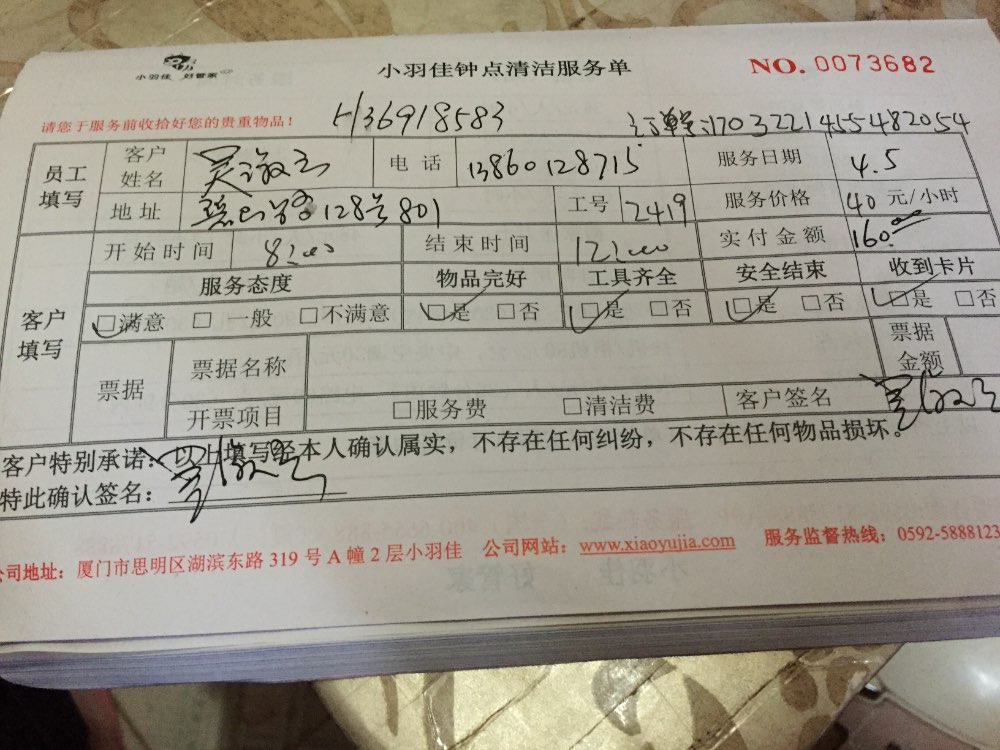 小羽佳 好管家
小羽佳钟点清洁服务单
NO. 0073682
请您于服务前收拾好您的贵重物品!
136918583
订单号:170322145548 2054
员工填写
客户姓名 吴
电话 13860128715
服务日期 4.5
地址 128号801
工号 2419
服务价格 40 元/小时
客户填写
开始时间 8:00
结束时间 12:00
实付金额 160.00
服务态度 物品完好 工具齐全 安全结束 收到卡片
□满意 □一般 □不满意 □是 □否 □是 □否 □是 □否 □是 □否
票据
票据名称
票据金额
开票项目 □服务费 □清洁费
客户签名
客户特别承诺:以上填写经本人确认属实,不存在任何纠纷,不存在任何物品损坏。
特此确认签名:
公司地址:厦门市思明区湖滨东路 319 号 A 幢 2 层小羽佳 公司网站:www.xiaoyujia.com 服务监督热线:0592-5888123